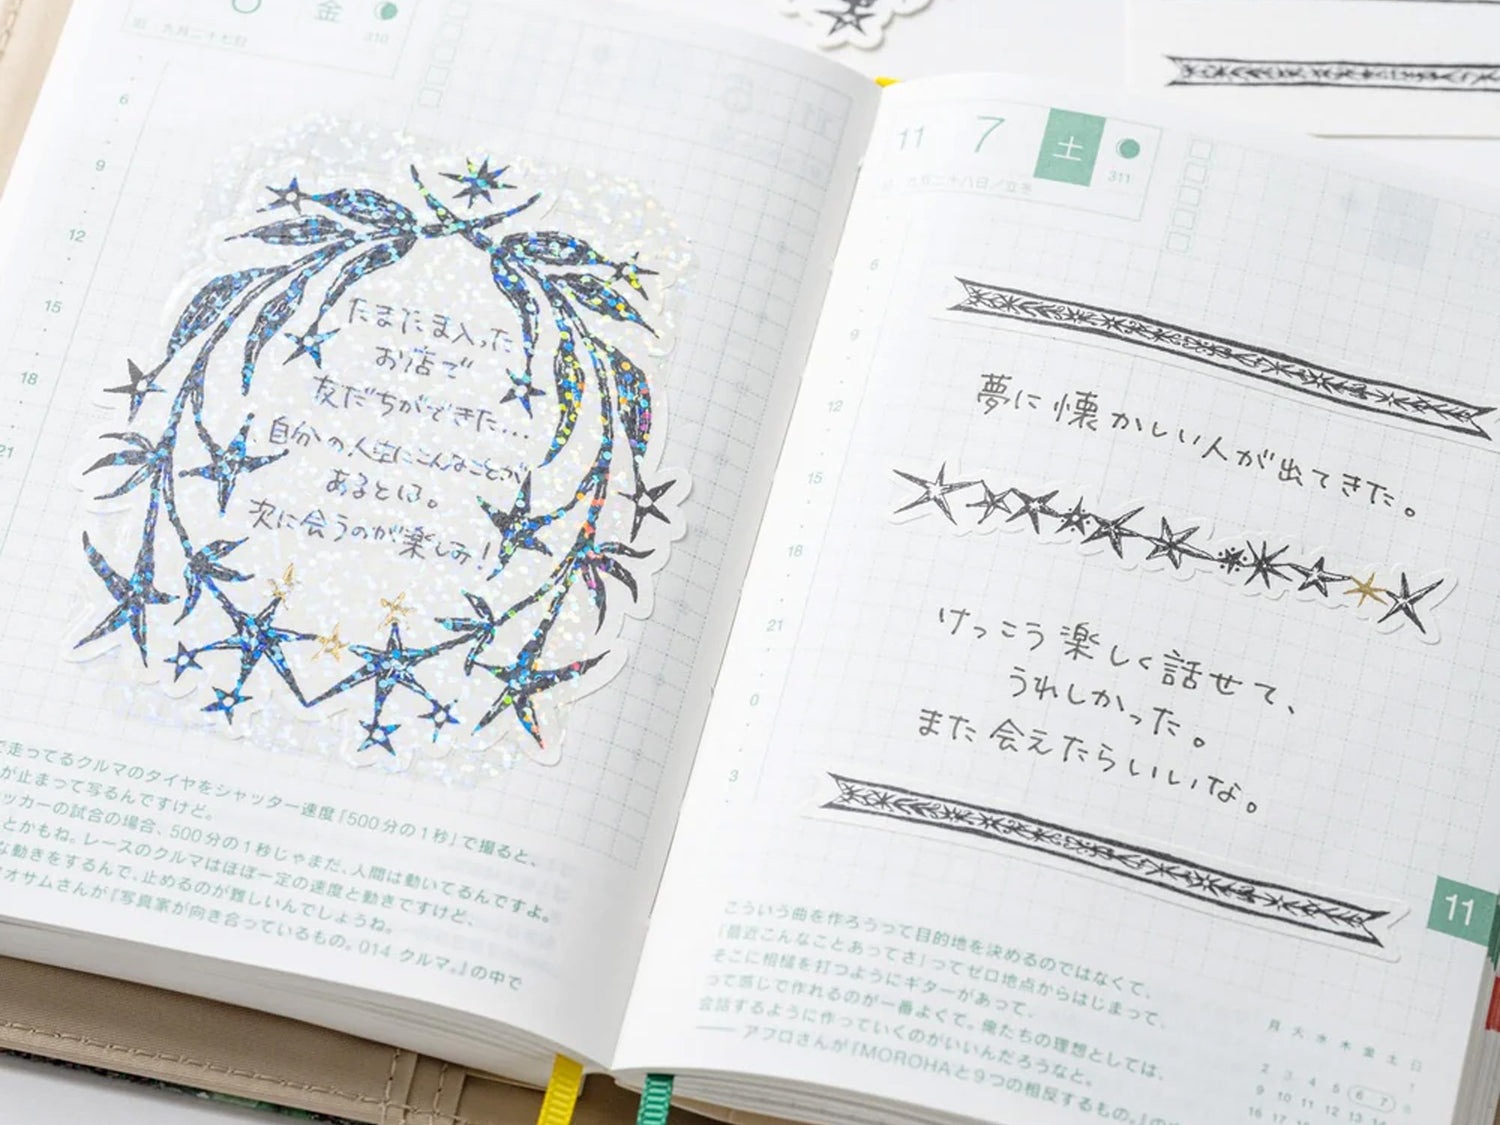 金
310
旧 九月二十七日
6
9
12
15
18
21
たまたま入った
お店で
友だちができた…
自分の人生にこんなことが
あるとは。
次に会うのが楽しみ!
で走ってるクルマのタイヤをシャッター速度「500分の1秒」で撮ると、
が止まって写るんですけど。
ッカーの試合の場合、500分の1秒じゃまだ、人間は動いてるんですよ。
とかもね。レースのクルマはほぼ一定の速度と動きですけど、
な動きをするんで、止めるのが難しいんでしょうね。
オサムさんが『写真家が向き合っているもの。014 クルマ。』の中で
11 7 土
311
九月二十八日/立冬
6
9
12
15
18
21
0
3
夢に懐かしい人が出てきた。
けっこう楽しく話せて、
うれしかった。
また会えたらいいな。
11
こういう曲を作ろうって目的地を決めるのではなくて、
「最近こんなことあってさ!」ってゼロ地点からはじまって、
そこに相槌を打つようにギターがあって、
って感じで作れるのが一番よくて。俺たちの理想としては、
会話するように作っていくのがいいんだろうなと。
── アフロさんが『MOROHAと9つの相反するもの。』の
月 火 水 木 金 土 日
1
2 3 4 5 6 7 8
9 10 11 12 13 14
16 17